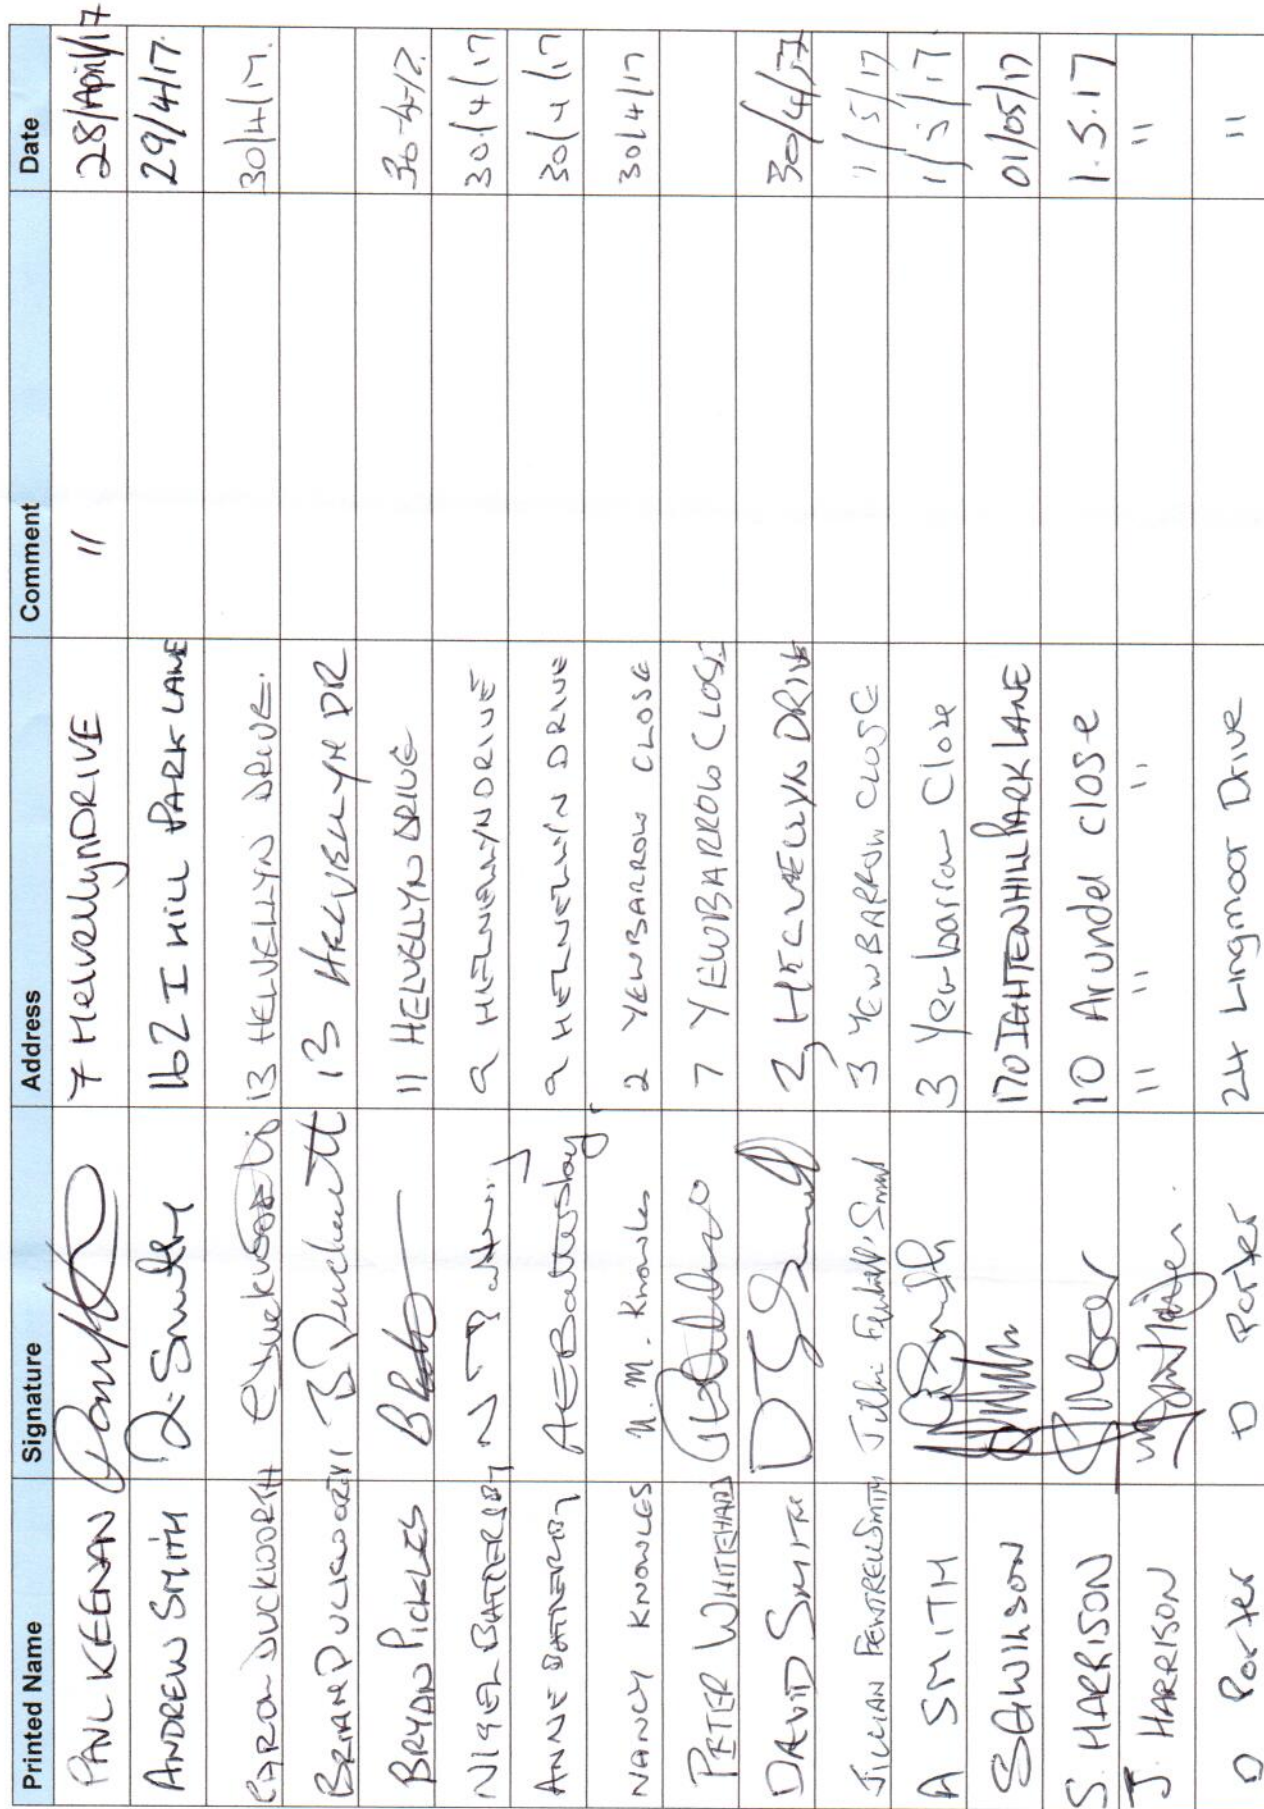 Printed Name Signature Address Comment Date
PAUL KEENAN 7 Helvellyn DRIVE " 28/April/17
ANDREW SMITH A Smith 162 I HILL PARK LANE 29/4/17.
CARON DUCKWORTH C Duckworth 13 HELVELLYN DRIVE. 30/4/17.
BRIAN DUCKWORTH B Duckworth 13 HELVELLYN DR
BRYAN PICKLES 11 HELVELLYN DRIVE 30-4-17.
NIGEL BATTERSBY 9 HELVELLYN DRIVE 30/4/17
ANNE BATTERSBY A E Battersby 9 HELVELLYN DRIVE 30/4/17
NANCY KNOWLES N. M. Knowles 2 YEWBARROW CLOSE 30/4/17
PETER WHITEHEAD 7 YEWBARROW CLOSE
DAVID SMITH D Smith 2, HELVAELLYN DRIVE 30/4/17
JILLIAN FENTRELL SMITH 3 YEWBARROW CLOSE 1/5/17
A SMITH A Smith 3 Yewbarrow Close 1/5/17
S A WILSON 170 IGHTENHILL PARK LANE 01/05/17
S. HARRISON 10 Arundel close 1.5.17
J. HARRISON " " " "
D Porter D Porter 24 Lingmoor Drive "